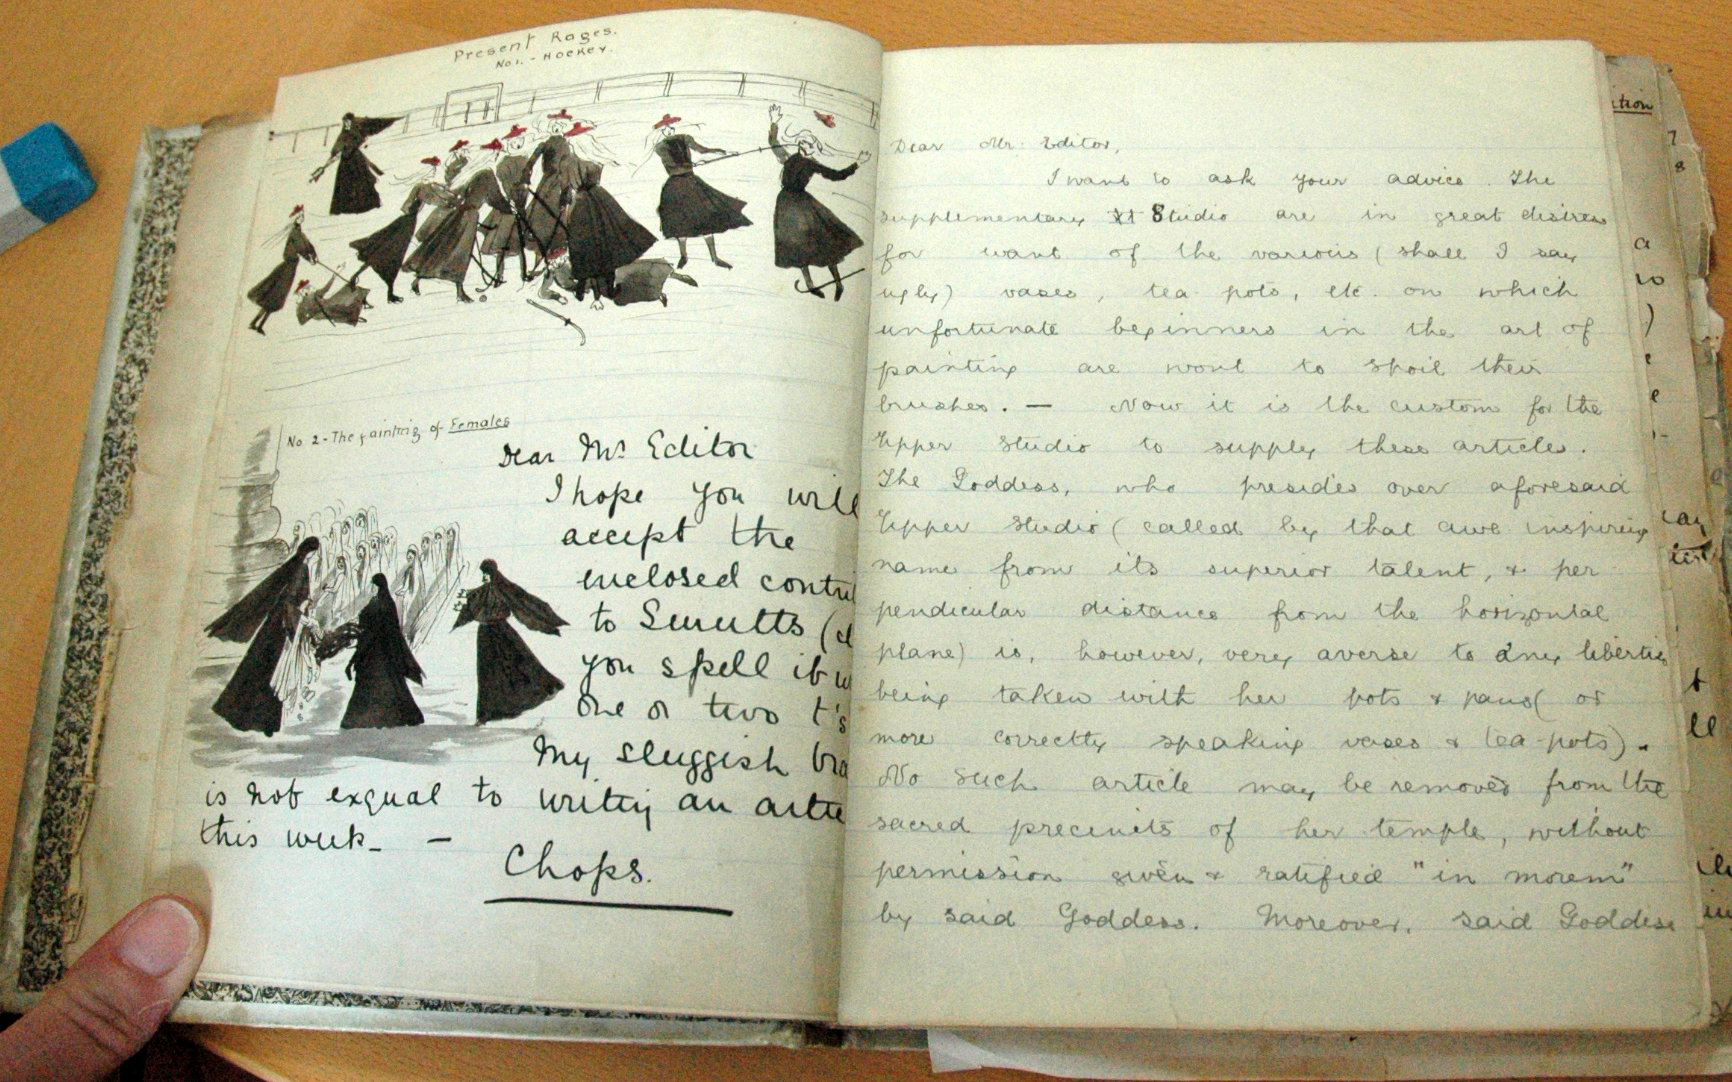 Present Rages.
No 1. - Hockey.
No 2 - The painting of Females
Dear Mr Editor
I hope you will
accept the
enclosed contri
to Smutts (d
you spell it w
one or two t's
My sluggish bra
is not exqual to writing an artic
this week_ —
Chops.
Dear Mr. Editor,
I want to ask your advice. The
supplementary St Studio are in great distress
for want of the various (shall I say
ugly) vases, tea pots, etc. on which
unfortunate beginners in the art of
painting are wont to spoil their
brushes. — Now it is the custom for the
Upper Studio to supply these articles.
The Goddess, who presides over aforesaid
Upper Studio (called by that awe inspiring
name from its superior talent, & per
pendicular distance from the horizontal
plane) is, however, very averse to any liberties
being taken with her pots & pans (or
more correctly speaking vases & tea-pots).
No such article may be removed from the
sacred precincts of her temple, without
permission given & ratified "in morem"
by said Goddess. Moreover, said Goddess
ition